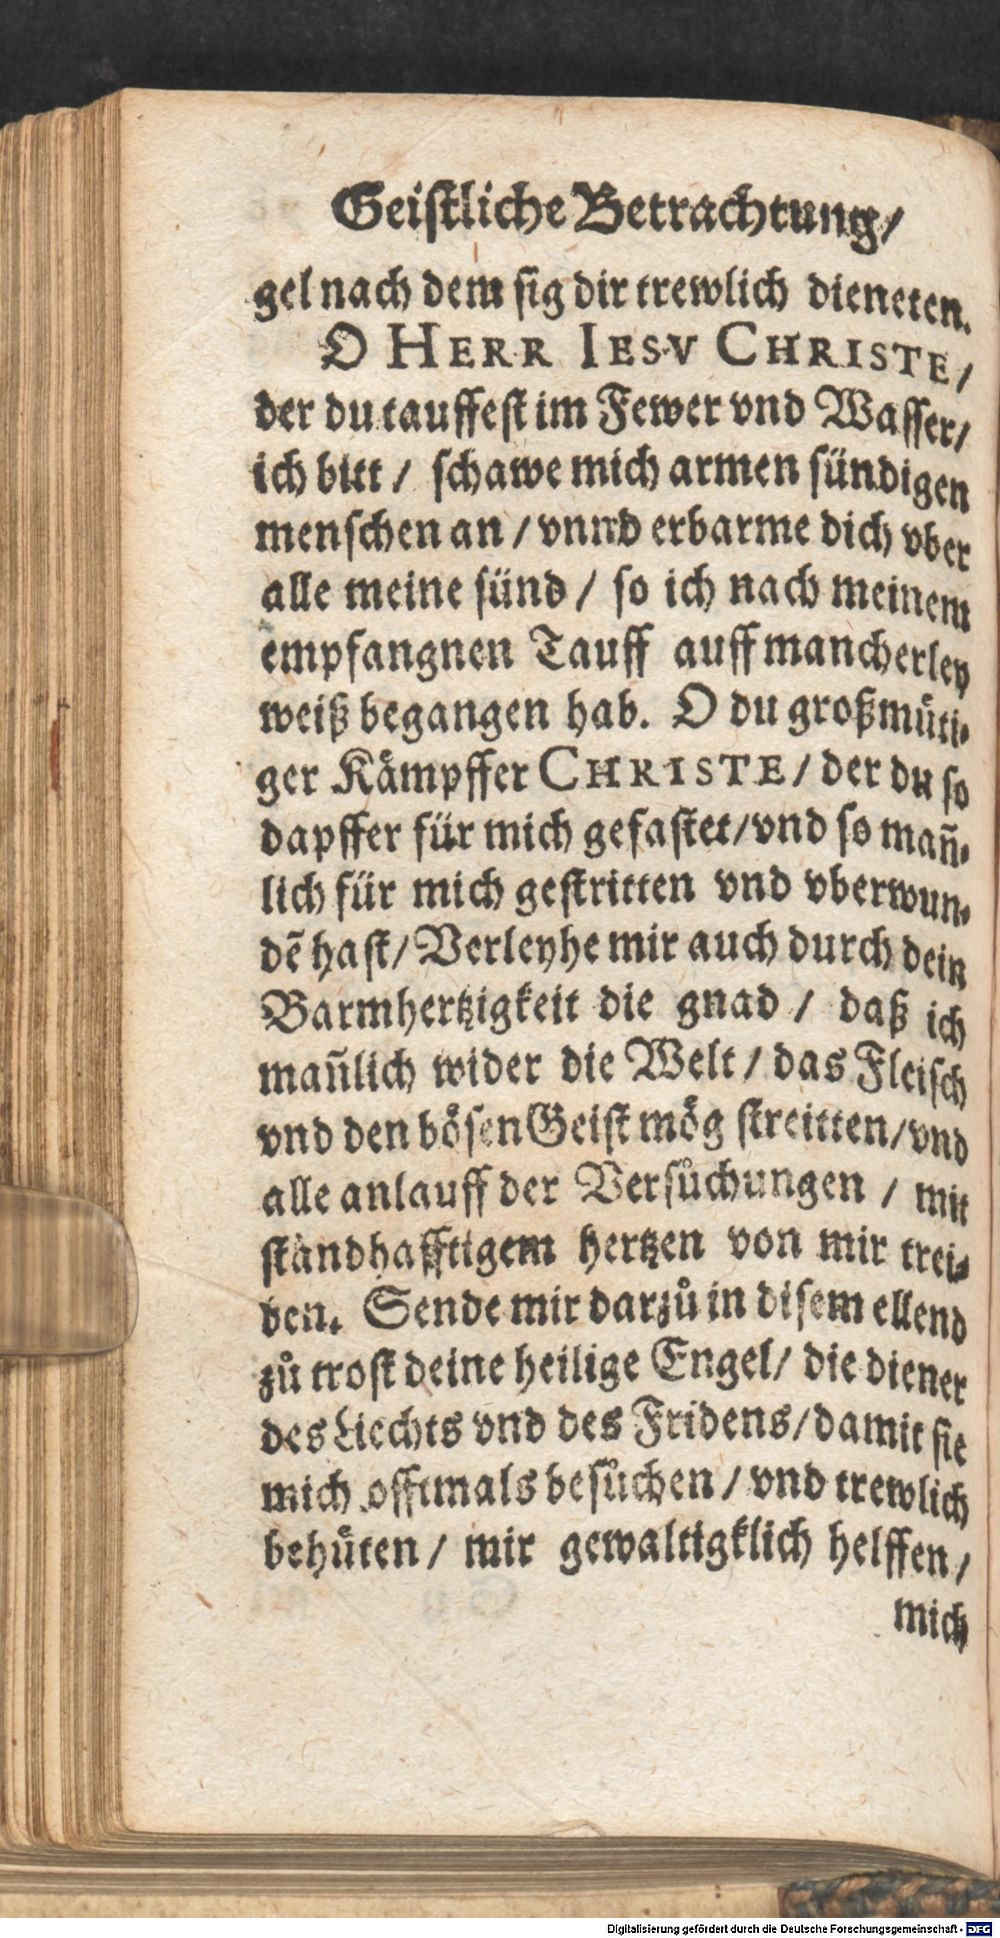 Geistliche Betrachtung/
gel nach dem sig dir trewlich dieneten.
O HERR IESV CHRISTE/
der du tauffest im Fewer vnd Wasser/
ich bitt / schawe mich armen sündigen
menschen an / vnnd erbarme dich vber
alle meine sünd / so ich nach meinem
empfangnen Tauff auff mancherley
weiß begangen hab. O du großmuͤti-
ger Kaͤmpffer CHRISTE/ der du so
dapffer für mich gefastet/vnd so mañ-
lich für mich gestritten vnd vberwun-
dẽ hast/ Verleyhe mir auch durch dein
Barmhertzigkeit die gnad / daß ich
mañlich wider die Welt / das Fleisch
vnd den boͤsen Geist moͤg streitten/vnd
alle anlauff der Versuͤchungen / mit
standhafftigem hertzen von mir trei-
ben. Sende mir darzů in disem ellend
zů trost deine heilige Engel/ die diener
des Liechts vnd des Fridens/damit sie
mich offtmals besůchen / vnd trewlich
behuͤten / mir gewaltigklich helffen /
mich
Digitalisierung gefördert durch die Deutsche Forschungsgemeinschaft - DFG